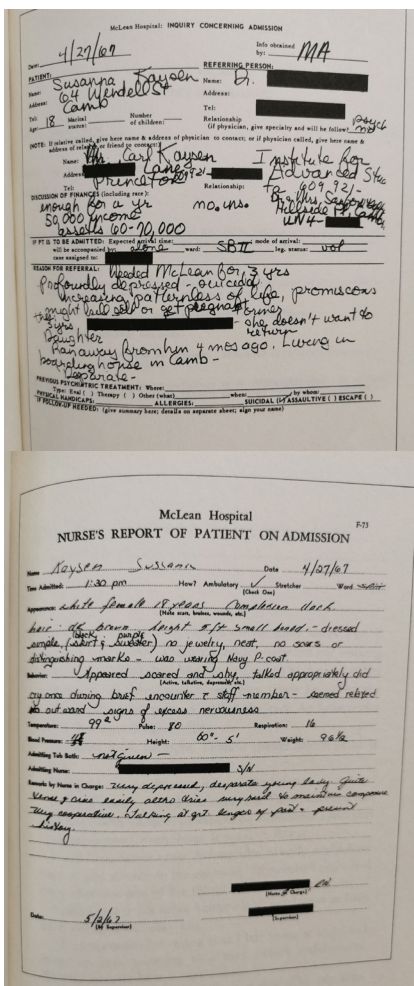 McLean Hospital: INQUIRY CONCERNING ADMISSION
Date: 4/27/67 Info obtained by: MA
PATIENT: REFERRING PERSON:
Name: Susanna Kaysen Name: Dr.
Address: 64 Wendell St Address:
Camb
Tel: Tel:
Age: 18 Marital status: Number of children: Relationship psych
(if physician, give specialty and will he follow)
(NOTE: If relative called, give here name & address of physician to contact; or if physician called, give here name &
address of relative or friend to contact:)
Name: Mr. Carl Kaysen Institute for
Address: Lane Advanced Stu
Tel: Princeton 609 921- Relationship:
DISCUSSION OF FINANCES (including rate):
enough for a yr no. ins.
50,000 income
assets 60-70,000 Hillside Pl. Camb
UN4-
IF PT IS TO BE ADMITTED: Expected arrival time: mode of arrival:
will be accompanied by alone ward: SB II leg. status: vol
case assigned to:
REASON FOR REFERRAL: Needed McLean for 3 yrs
Profoundly depressed - suicidal
Increasing patternless of life, promiscous
might kill self or get pregnant
3 yrs former
Daughter - she doesn't want to
return
Ran away from him 4 mos ago. Living in
boarding house in Camb -
Desparate -
PREVIOUS PSYCHIATRIC TREATMENT: Where:
Type: Eval ( ) Therapy ( ) Other (what) when: by whom:
PHYSICAL HANDICAPS: ALLERGIES: SUICIDAL ( ) ASSAULTIVE ( ) ESCAPE ( )
IF FOLLOW-UP NEEDED: (give summary here; details on separate sheet; sign your name)
McLean Hospital
F-73
NURSE'S REPORT OF PATIENT ON ADMISSION
Name Kaysen Susanna Date 4/27/67
Time Admitted: 1:30 pm How? Ambulatory ✓ Stretcher Ward
(Check One)
Appearance: white female 18 years Complexion dark
(Note scars, bruises, wounds, etc.)
hair - dk brown height 5 ft small boned - dressed
black purple
simple, (skirt & sweater) no jewelry, neat, no scars or
distinguishing marks - was wearing Navy P-coat
Behavior: Appeared scared and shy, talked appropriately did
(Active, talkative, depressed, etc.)
cry once during brief encounter c staff member - seemed related
no outward signs of excess nervousness
Temperature: 99² Pulse: 80 Respiration: 16
Blood Pressure: Height: 60" - 5' Weight: 96½
Admitting Tub Bath: not given -
Admitting Nurse: S/N
Remarks by Nurse in Charge: Very depressed, desperate young lady. Quite
tense & cries easily altho tries very hard to maintain composure
Very cooperative. Talking at grt. length of past & present
history.
RN
(Nurse in Charge)
Date: 5/2/67
(By Supervisor) (Supervisor)